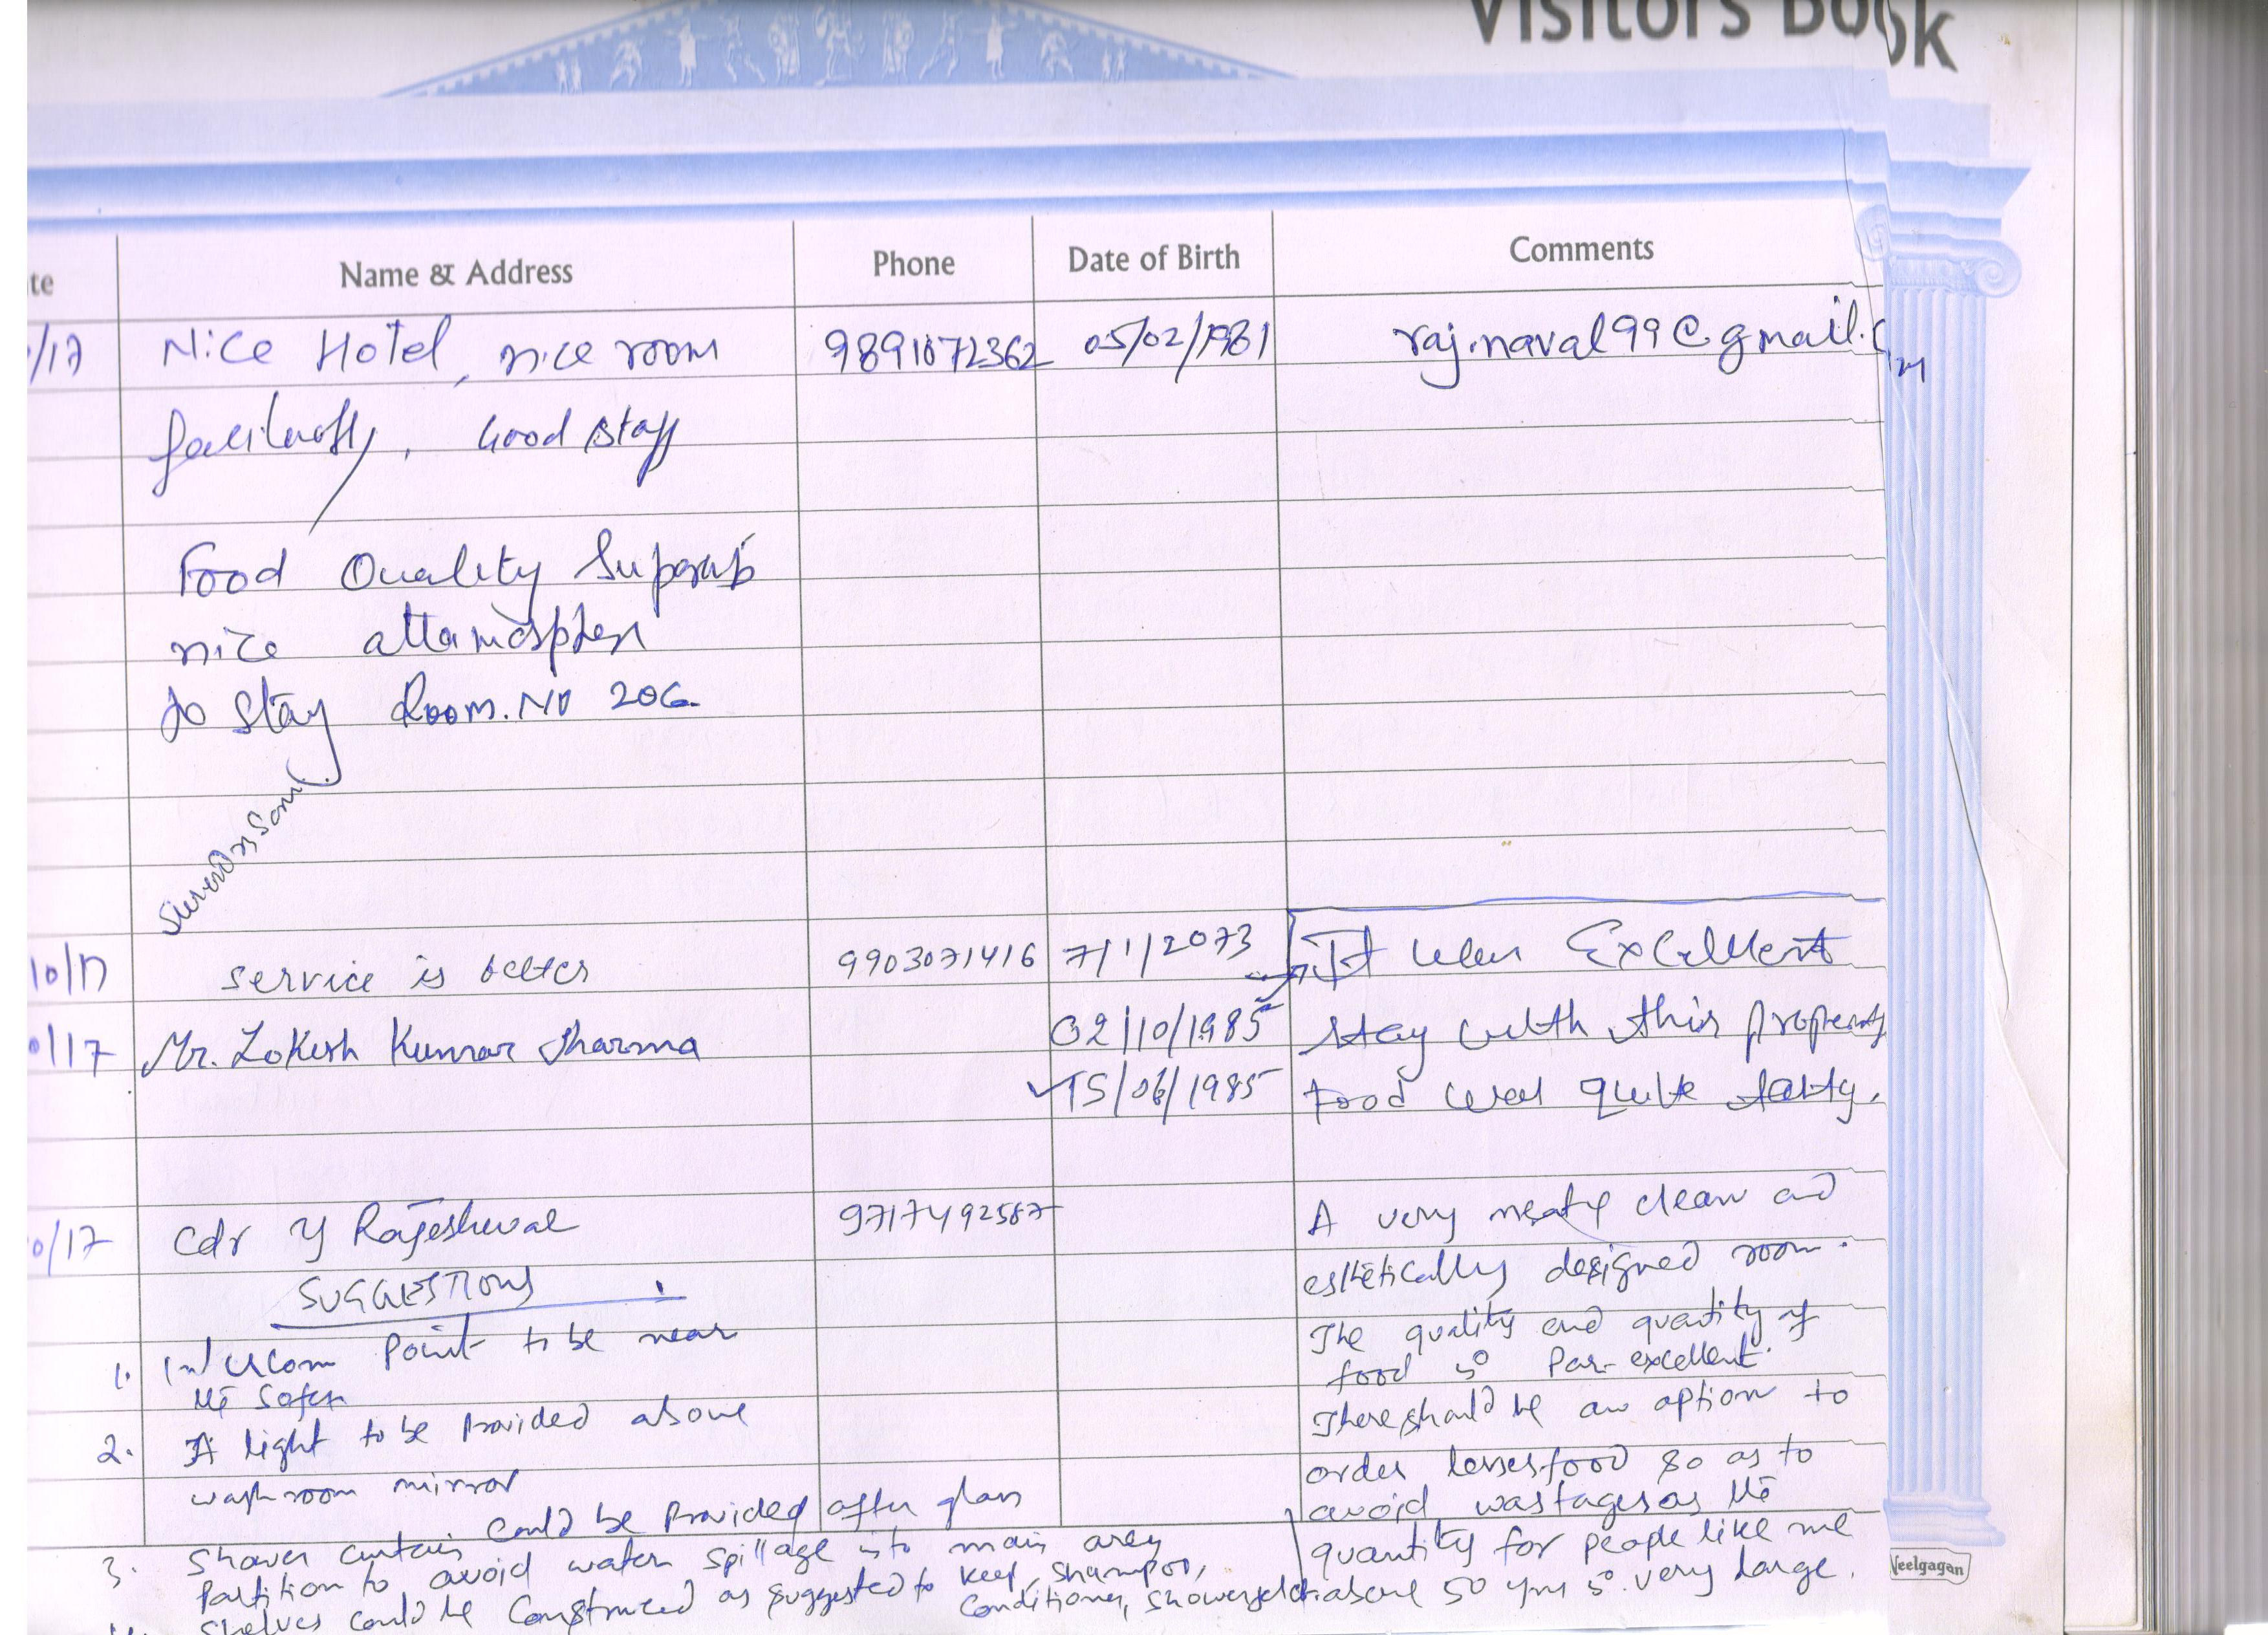 Visitors Book
te Name & Address Phone Date of Birth Comments
/17 Nice Hotel, nice room 9891872362 05/02/1981 raj.naval99@gmail.com
Good staff
Food Quality Suparb
nice attamosphere
to stay Room. No 206
Soni
10/17 service is better 9903071416 7/1/2073 It was Excellent
0/17 Mr. Lokesh Kumar Sharma 02/10/1985 stay with this property
15/06/1985 Food was quite tasty.
0/17 Cdr Y Rajeshwar 9717492587 A very neat & clean and
SUGGESTIONS esthetically designed room.
1. Intercom Point to be near The quality and quantity of
the sofa food is Par-excellent.
2. A light to be provided above There should be an option to
washroom mirror order lesser food so as to
avoid wastages as the
3. Shower curtain could be Provided after glass quantity for people like me
partition to avoid water spillage into main area above 50 yrs is very large.
Shelves could be constructed as suggested to keep shampoo,
conditioner, showergel etc.
Neelgagan